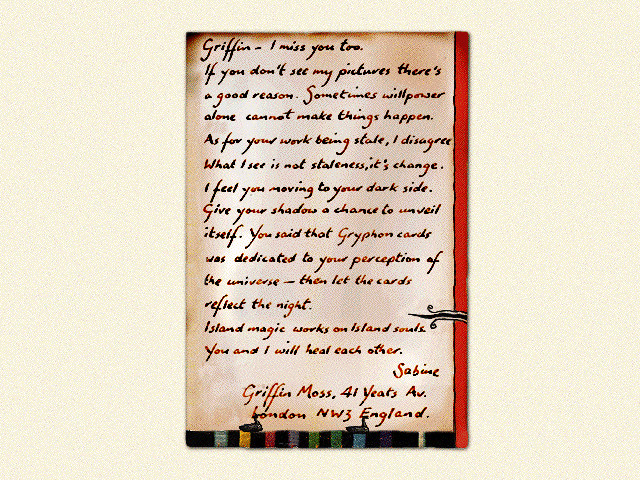 Griffin – I miss you too.
If you don't see my pictures there's
a good reason. Sometimes willpower
alone cannot make things happen.
As for your work being stale, I disagree
What I see is not staleness, it's change.
I feel you moving to your dark side.
Give your shadow a chance to unveil
itself. You said that Gryphon cards
was dedicated to your perception of
the universe – then let the cards
reflect the night.
Island magic works on Island souls.
You and I will heal each other.
Sabine
Griffin Moss, 41 Yeats Av.
London NW3 England.